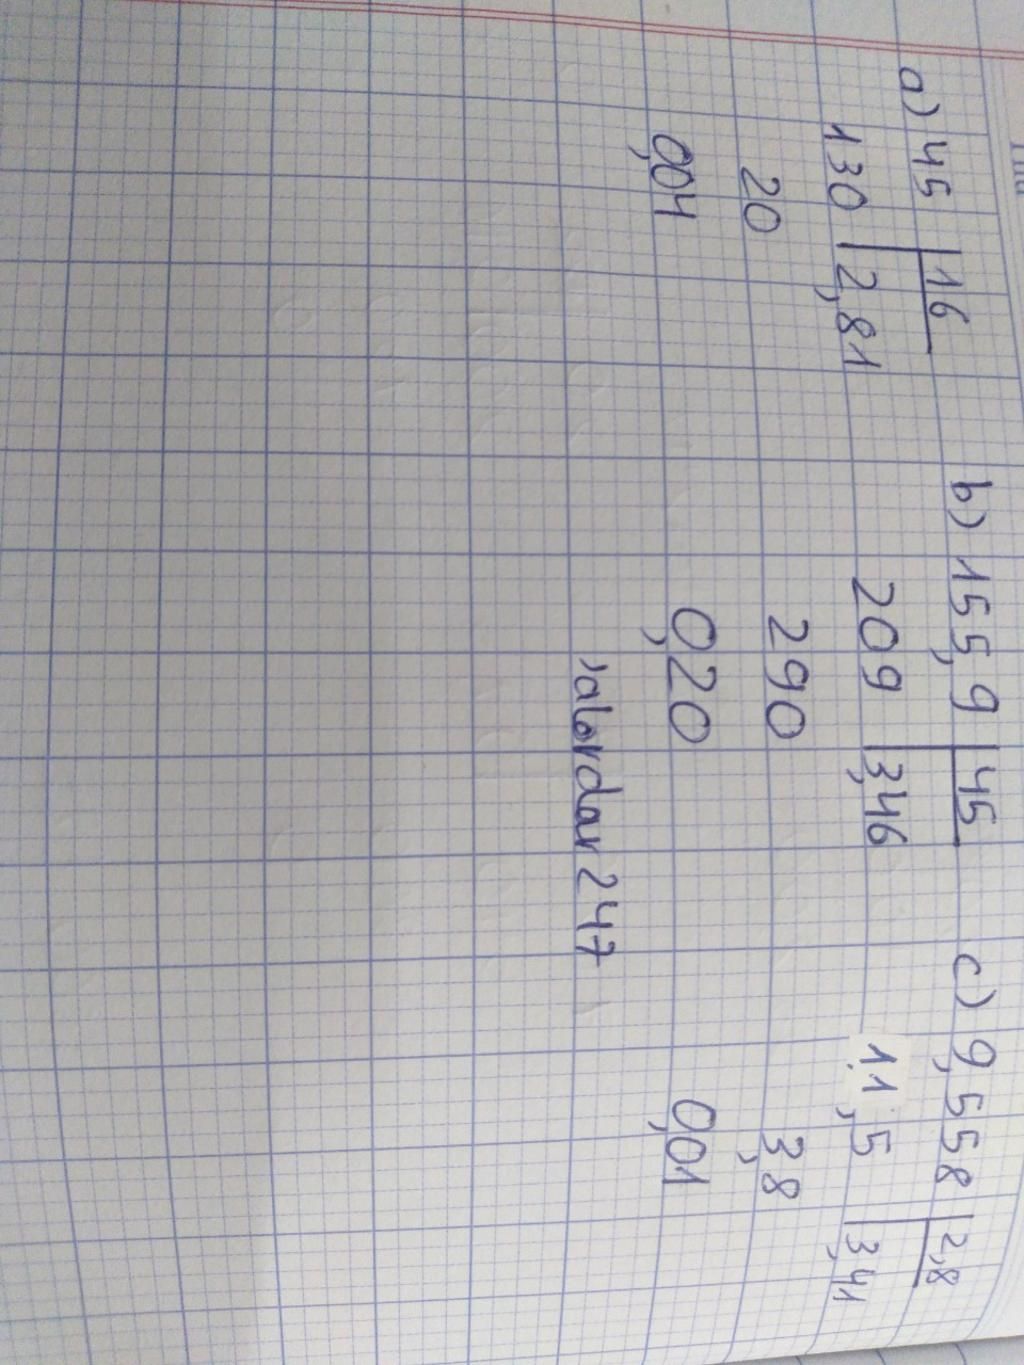 a) 45 16
130 2,81
20
,004
b) 155,9 45
209 3,46
290
0,20
c) 9,558 2,8
11,5 3,41
3,8
0,01
247